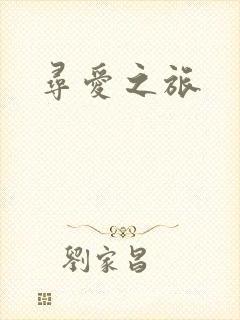 尋愛之旅
劉家昌